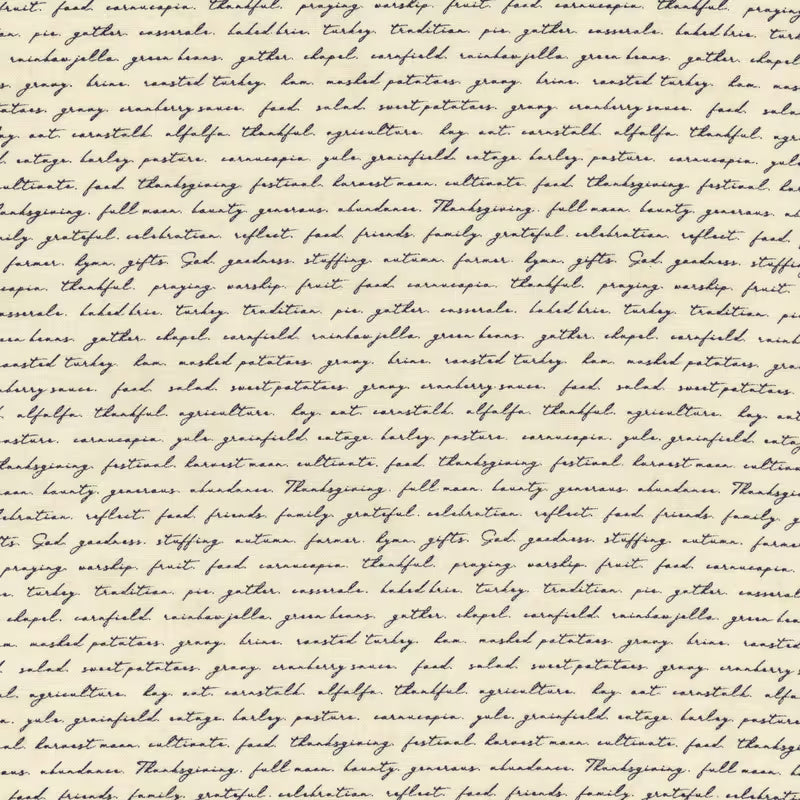 fruit. food. cornucopia. thankful. praying. worship. fruit. food. cornucopia. thankful. praying
pie. gather. casserole. baked brie. turkey. tradition. pie. gather. casserole. baked brie. turk
rainbow jello. green beans. gather. chapel. cornfield. rainbow jello. green beans. gather. chapel
gravy. brine. roasted turkey. ham. mashed potatoes. gravy. brine. roasted turkey. ham. mas
tatoes. gravy. cranberry sauce. food. salad. sweet potatoes. gravy. cranberry sauce. food. sala
oat. cornstalk. alfalfa. thankful. agriculture. hay. oat. cornstalk. alfalfa. thankful. agr
eatage. barley. pasture. cornucopia. yule. grainfield. eatage. barley. pasture. cornucopia. yule
ultivate. food. thanksgiving. festival. harvest moon. cultivate. food. thanksgiving. festival. har
hanksgiving. full moon. bounty. generous. abundance. Thanksgiving. full moon. bounty. generous. ab
mily. grateful. celebration. reflect. food. friends. family. grateful. celebration. reflect. food.
farmer. hymn. gifts. God. goodness. stuffing. autumn. farmer. hymn. gifts. God. goodness. stuffin
copia. thankful. praying. worship. fruit. food. cornucopia. thankful. praying. worship. fruit.
asserole. baked brie. turkey. tradition. pie. gather. casserole. baked brie. turkey. tradition. pie
een beans. gather. chapel. cornfield. rainbow jello. green beans. gather. chapel. cornfield. rainb
oasted turkey. ham. mashed potatoes. gravy. brine. roasted turkey. ham. mashed potatoes. gra
nberry sauce. food. salad. sweet potatoes. gravy. cranberry sauce. food. salad. sweet potatoes.
alfalfa. thankful. agriculture. hay. oat. cornstalk. alfalfa. thankful. agriculture. hay. oat
asture. cornucopia. yule. grainfield. eatage. barley. pasture. cornucopia. yule. grainfield. eata
hanksgiving. festival. harvest moon. cultivate. food. thanksgiving. festival. harvest moon. cultiva
oon. bounty. generous. abundance. Thanksgiving. full moon. bounty. generous. abundance. Thanksgi
lebration. reflect. food. friends. family. grateful. celebration. reflect. food. friends. family. g
ts. God. goodness. stuffing. autumn. farmer. hymn. gifts. God. goodness. stuffing. autumn. farme
praying. worship. fruit. food. cornucopia. thankful. praying. worship. fruit. food. cornucopia.
turkey. tradition. pie. gather. casserole. baked brie. turkey. tradition. pie. gather. casserol
chapel. cornfield. rainbow jello. green beans. gather. chapel. cornfield. rainbow jello. green bea
mashed potatoes. gravy. brine. roasted turkey. ham. mashed potatoes. gravy. brine. roasted
salad. sweet potatoes. gravy. cranberry sauce. food. salad. sweet potatoes. gravy. cranberry s
agriculture. hay. oat. cornstalk. alfalfa. thankful. agriculture. hay. oat. cornstalk. alfa
yule. grainfield. eatage. barley. pasture. cornucopia. yule. grainfield. eatage. barley. pasture
harvest moon. cultivate. food. thanksgiving. festival. harvest moon. cultivate. food. thanksgi
ous. abundance. Thanksgiving. full moon. bounty. generous. abundance. Thanksgiving. full moon.
food. friends. family. grateful. celebration. reflect. food. friends. family. grateful. celebrati